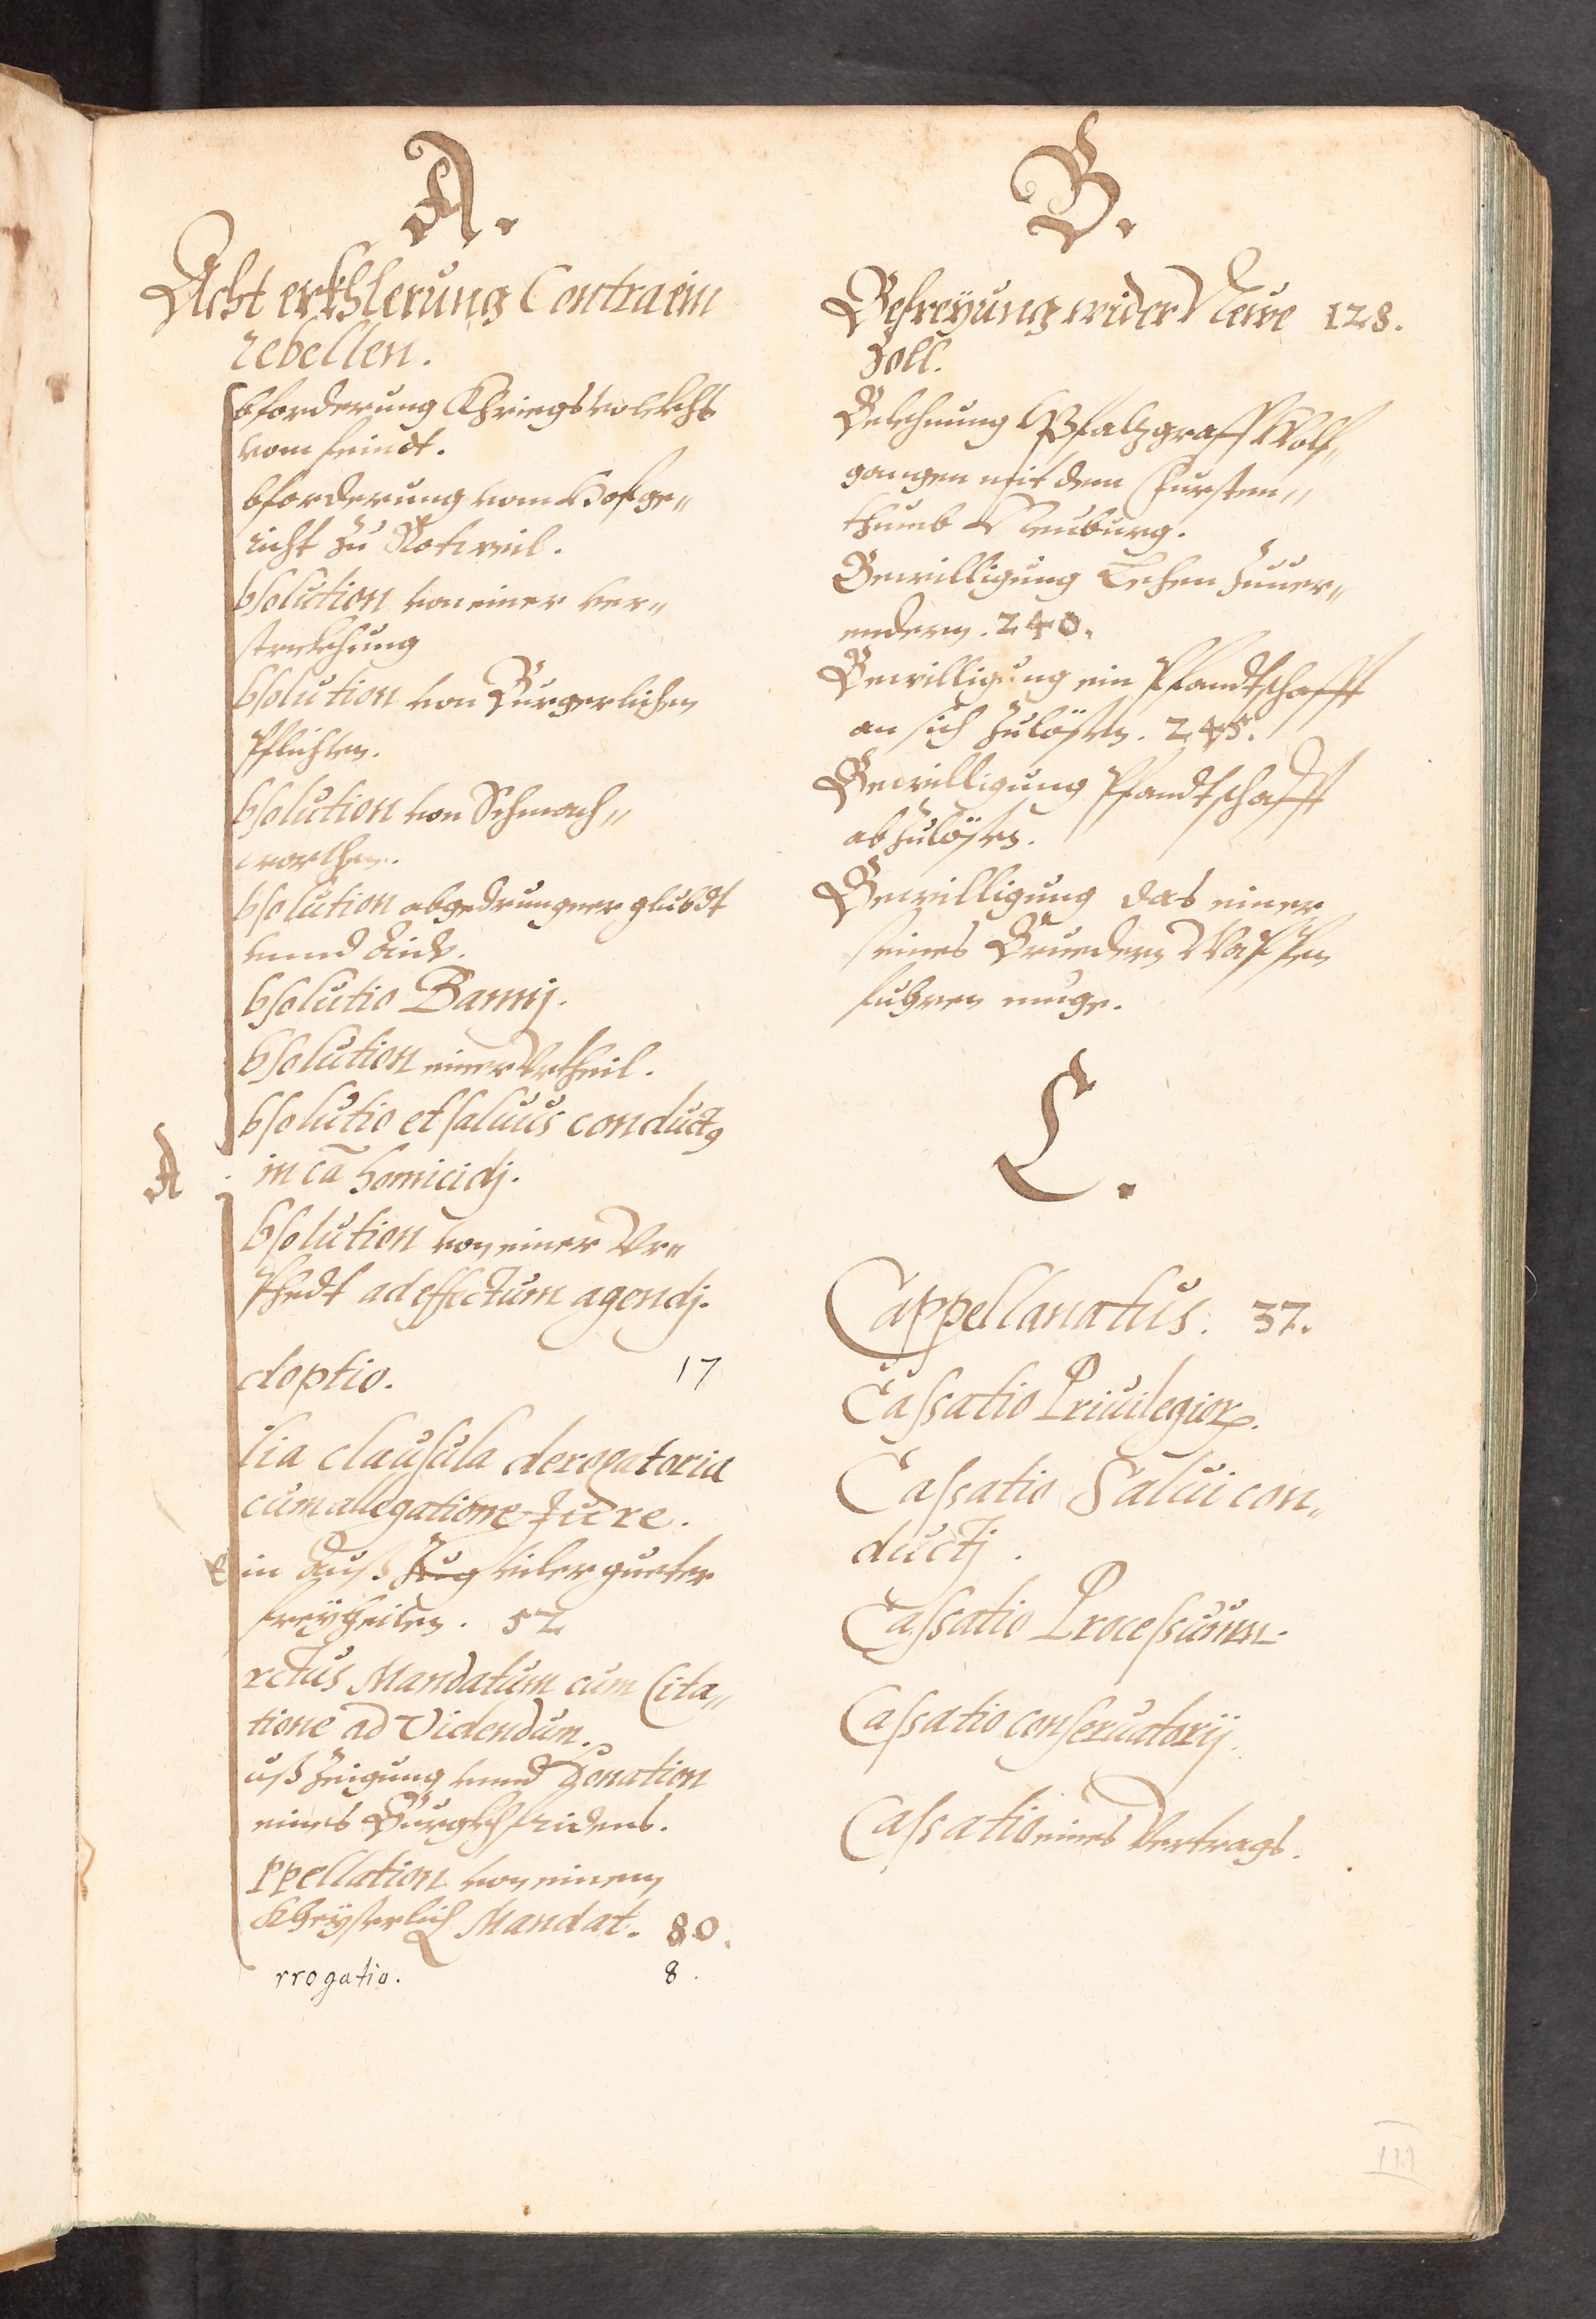 A.
Acht erkhlerung Contra ein
rebellen.
bforderung Khriegs volckhs
vom feindt.
bforderung vom Hofge„
richt zu Rotweil.
bsolution von einer ver„
strickhung
bsolution von Burgerlichen
Pflichten.
bsolution von Schmach„
worthen.
bsolution abgedrungner glubdt
vnnd Aidt.
bsolutio Banny.
bsolution einer Vrtheil.
bsolutio et saluus conductus
A in ca homicidj.
bsolution von einer Vr„
Phedt ad effectum agendj.
doptio. 17
lia clausula derogatoria
cum allegatione Jure.
in Auß Zug viler gueter
freyheiten. 52
rctus Mandatum cum Cita„
tione ad Videndum.
uß Zeigung vnnd Donation
eines Burgkhfridens.
ppellation von einem
Kheyserlich Mandat. 80.
rrogatio. 8.
B.
Befreyung wider Neue 128.
Zoll.
Belehnung Pfaltzgraff Wolf„
gangen mit dem Fursten„
thumb Neuburg.
Bewilligung Lehen Zuuer„
endern. 240.
Bewilligung ein Pfandtschafft
an sich Zulösen. 245.
Bewilligung Pfandtschafft
ab Zulösen.
Bewilligung das einer
seines Bruedern Wappen
fuhren muge.
C.
Cappellanatus. 37.
Cassatio Priuilegior.
Cassatio Salui con„
ductj.
Cassatio Processuum.
Cassatio conseruatorij.
Cassatio eines Vertrags.
III